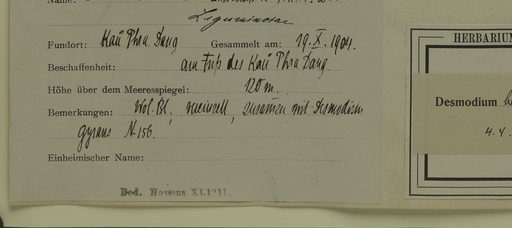 Name:
Leguminosae
Fundort: Kau Phra Dang Gesammelt am: 19. X. 1904.
Beschaffenheit: am Fuß des Kau Phra Dang
Höhe über dem Meeresspiegel: 120 m.
Bemerkungen: viol. Bl., zusamen mit Desmodium
gyrans N 156.
Einheimischer Name:
Ded. Hosseus XI.1911.
HERBARIUM
Desmodium
4. 4.